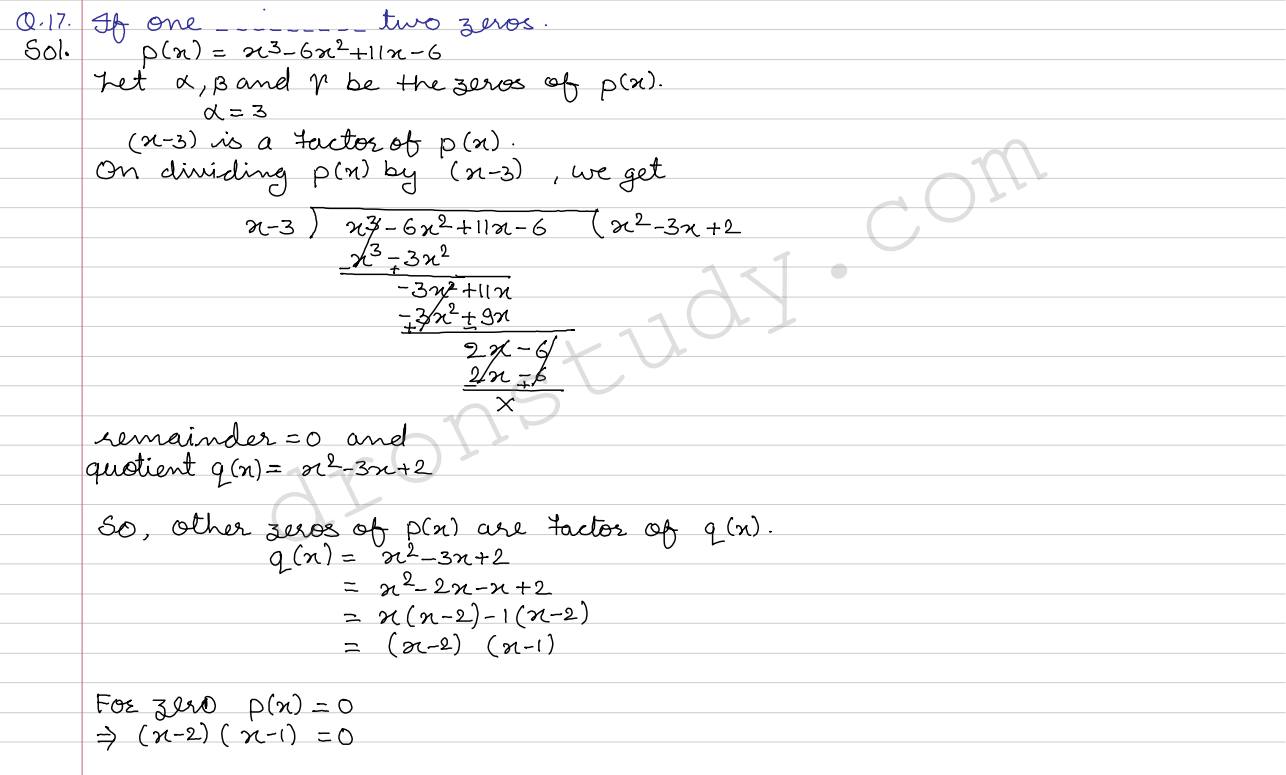 Q.17. If one _ _ _ _ _ _ _ _ _ two zeros.
Sol. p(x) = x³-6x²+11x-6
Let α, β and γ be the zeros of p(x).
α = 3
(x-3) is a factor of p(x).
On dividing p(x) by (x-3), we get
x-3 ) x³-6x²+11x-6 ( x²-3x+2
x³-3x²
- +
-3x²+11x
-3x²+9x
+ -
2x-6
2x-6
- +
x
remainder = 0 and
quotient q(x) = x²-3x+2
So, other zeros of p(x) are factor of q(x).
q(x) = x²-3x+2
= x²-2x-x+2
= x(x-2)-1(x-2)
= (x-2) (x-1)
For zero p(x) = 0
⇒ (x-2)(x-1) = 0
dronstudy.com